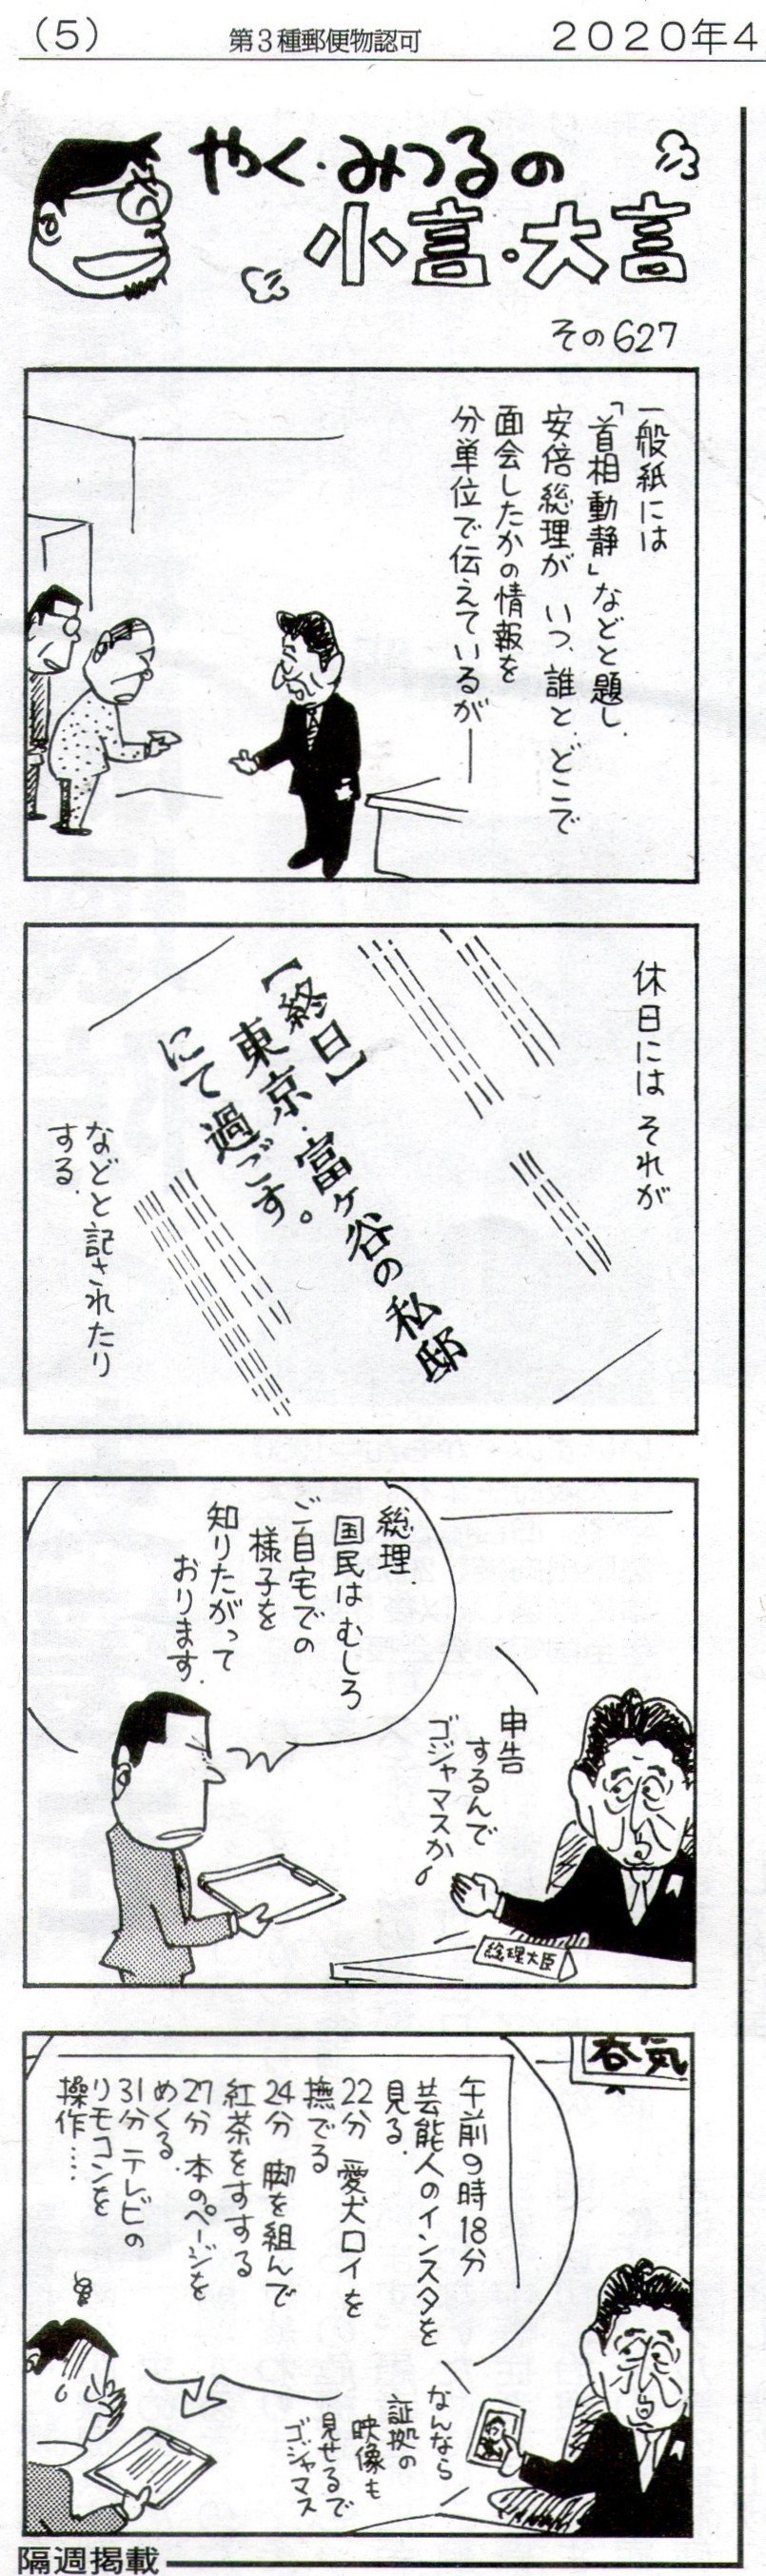 (5)
第3種郵便物認可
2020年4
やく・みつるの
小言・大言
その627
一般紙には
「首相動静」などと題し、
安倍総理が いつ、誰と、どこで
面会したかの情報を
分単位で伝えているが―
休日には それが
【終日】
東京・富ヶ谷の私邸
にて過ごす。
などと記されたり
する。
総理、
国民はむしろ
ご自宅での
様子を
知りたがって
おります。
申告
するんで
ゴジャマスか
総理大臣
呑気
午前9時18分
芸能人のインスタを
見る。
22分 愛犬ロイを
撫でる
24分 脚を組んで
紅茶をすする
27分 本のページを
めくる。
31分 テレビの
リモコンを
操作…
なんなら
証拠の
映像も
見せるで
ゴジャマス
隔週掲載